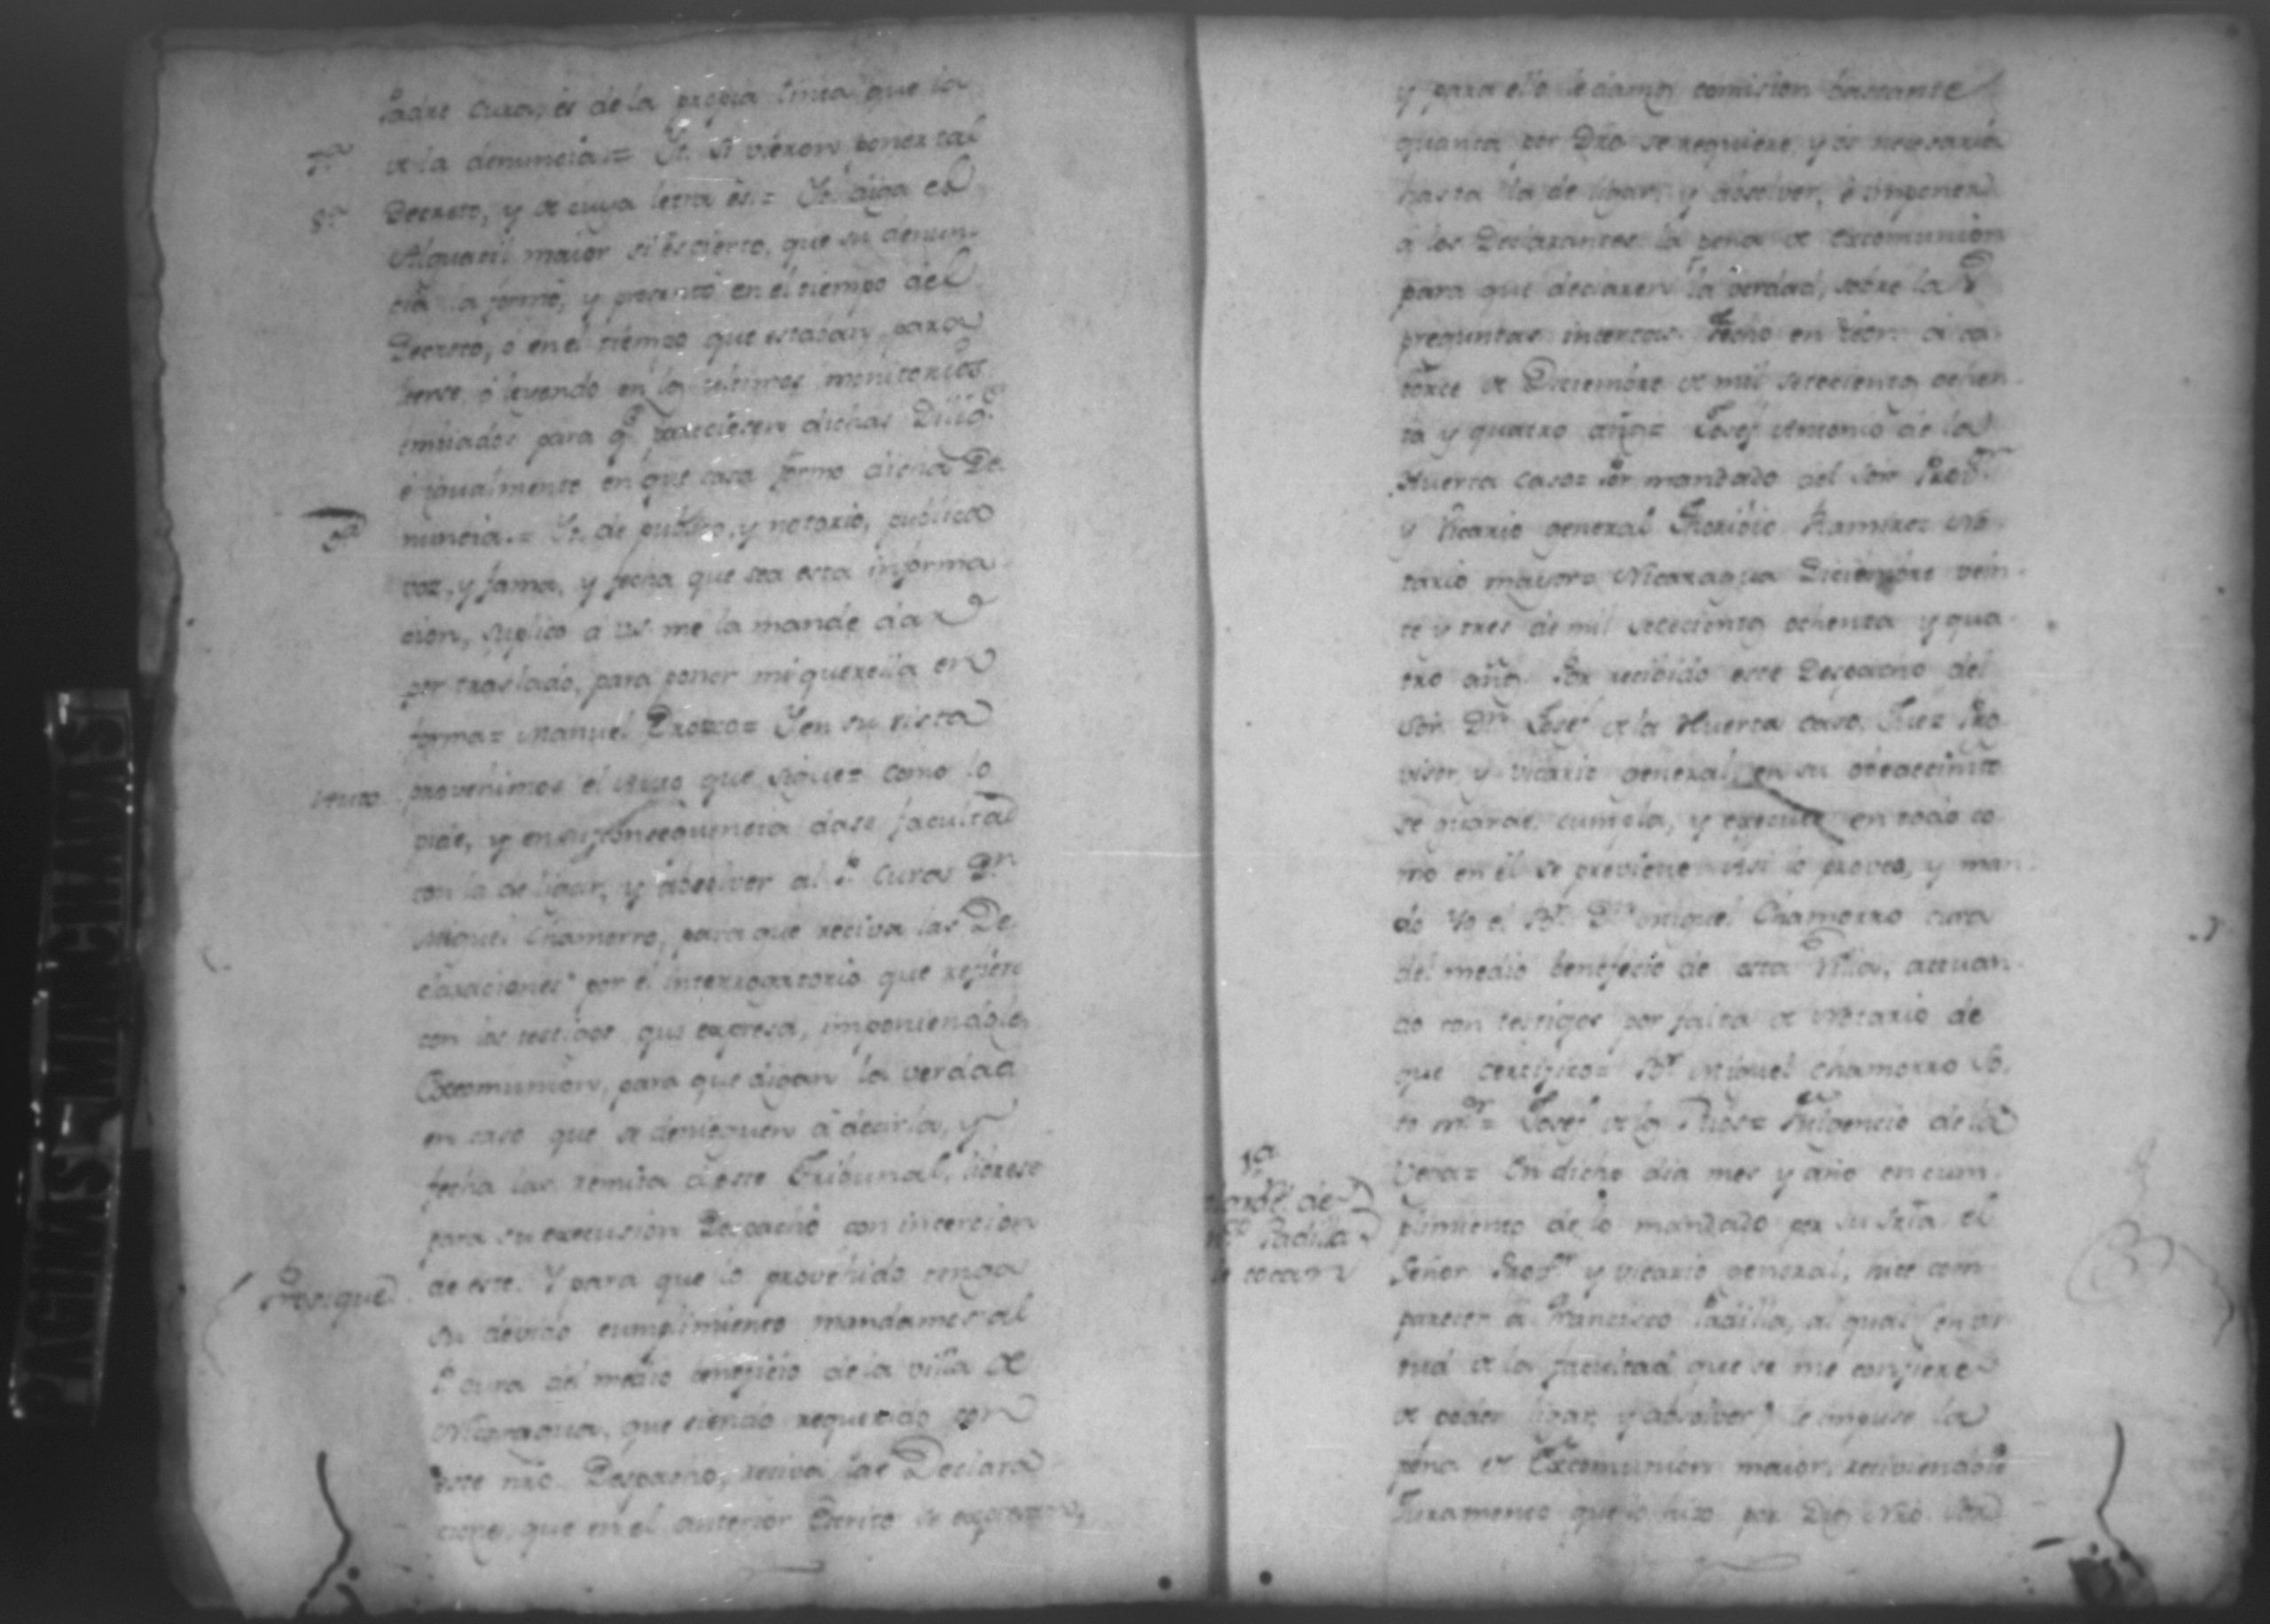 Padre Cura, es de la propia linea que la
7ª
de la denuncia = Yt. si vieron poner tal
8ª
Decreto, y de cuya letra es = Yt. diga el
Alguacil maior si es cierto, que su denun-
cia la formó, y presentó en el tiempo del
Decreto, ó en el tiempo que estaban para
leerse, ó leyendo en los ultimos monitorios
emitiados para qe. pareciesen dichas Dilig.s
é igualmente en que casa formo dicha De
9ª
nuncia. = Yt. de publico, y notorio, publica
voz, y fama, y fecha que sea esta informa
cion, suplico á Us. me la mande dar
por traslado, para poner mi querella en
forma = Manuel Orozco = Y en su vista
Auto
provehimos el Auto que sigue = Como lo
pide, y en su consequencia dase facultad
con la de ligar, y absolver al P. Cura Dn.
Miguel Chamorro, para que reciva las De
claraciones por el interrogatorio que refiere
con los testigos que expresa, imponiendoles
Excomunion, para que digan la verdad
en caso que se denieguen á decirla, y
fecha las remita á este Tribunal, librese
para su execucion Despacho con incercion
Prosigue
de este. Y para que lo provehido tenga
su devido cumplimiento mandamos al
P. Cura del medio beneficio de la villa de
Nicaragua, que siendo requerido con
este nro. Despacho, reciva las Declara
ciones, que en el anterior Escrito se expresan,
y para ello le damos comision bastante
quanta por Dro se requiere, y es necesaria
hasta la de ligar, y absolver, é imponer
á los Declarantes la pena de excomunion
para que declaren la verdad, sobre las
preguntas incertas. Fecho en Leon á ca
torce de Diciembre de mil setecientos ochen
ta y quatro años = Josef Antonio de la
Huerta Caso = Por mandado del Sor. Prov.or
y Vicario general Thoribio Ramirez No
tario mayor = Nicaragua Diciembre vein
te y tres de mil setecientos ochenta y qua
tro años. Por recibido este Despacho del
Sor. Dn. Josef de la Huerta Caso, Juez Pro
visor, y Vicario general, en su obedecimto
se guarde, cumpla, y execute en todo co
mo en él se previene. Asi lo proveo, y man
do Yo el Br. Dn. Miguel Chamorro Cura
del medio beneficio de esta Villa, actuan
do con testigos por falta de Notario de
que certifico = Br. Miguel Chamorro So
to mr. = Josef de los Rios = Fulgencio de la
Vega = En dicho dia mes y año en cum
1ª
de
Padilla
le tocan
plimiento de lo mandado por su Sria. el
Señor Prov.or y Vicario general, hice com
parecer á Francisco Padilla, al qual (en vir
tud de la facultad que se me confiere
de poder ligar, y absolver) le impuse la
pena de Excomunion maior, reciviendole
Juramento que lo hizo por Dios Nro. Sor.